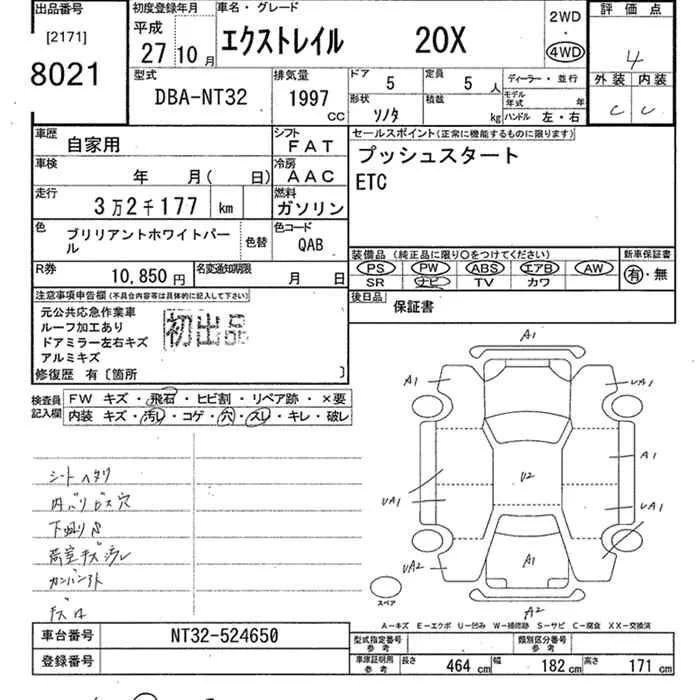 出品番号
[2171]
8021
初度登録年月
平成
27 10 月
車名・グレード
エクストレイル 20X
2WD
・
4WD
評価点
4
外装 内装
C C
型式
DBA-NT32
排気量
1997 CC
ドア 5
定員 5 人
ディーラー・並行
形状
積載 kg
モデル年式 年
ハンドル 左・右
車歴 自家用
シフト FAT
車検 年 月( 日)
冷房 AAC
走行 3万2千177 km
燃料 ガソリン
色 ブリリアントホワイトパール
色替
色コード QAB
R券 10,850 円
名変通知期限 月 日
セールスポイント(正常に機能するものに限ります)
プッシュスタート
ETC
装備品 (純正品に限り○をつけてください)
新車保証書
PS PW ABS エアB AW
有・無
SR ナビ TV カワ
後日品 保証書
注意事項申告欄(不具合内容等は具体的に記入して下さい)
元公共応急作業車
ルーフ加工あり
ドアミラー左右キズ
アルミキズ
初出品
修復歴 有〔箇所 〕
検査員記入欄
FW キズ・飛石・ヒビ割・リペア跡・×要
内装 キズ・汚レ・コゲ・穴・スレ・キレ・破レ
シートヘタリ
内バリビス穴
下廻りS
荷室キズ汚レ
A1
A1
UA1
A1
U2
UA1
UA1
UA2
A1
A2
スペア
A-キズ E-エクボ U-凹み W-補修跡 S-サビ C-腐食 XX-交換済
車台番号 NT32-524650
登録番号
型式指定番号 参考
類別区分番号 参考
車庫証明用 参考
長さ 464 cm
幅 182 cm
高さ 171 cm